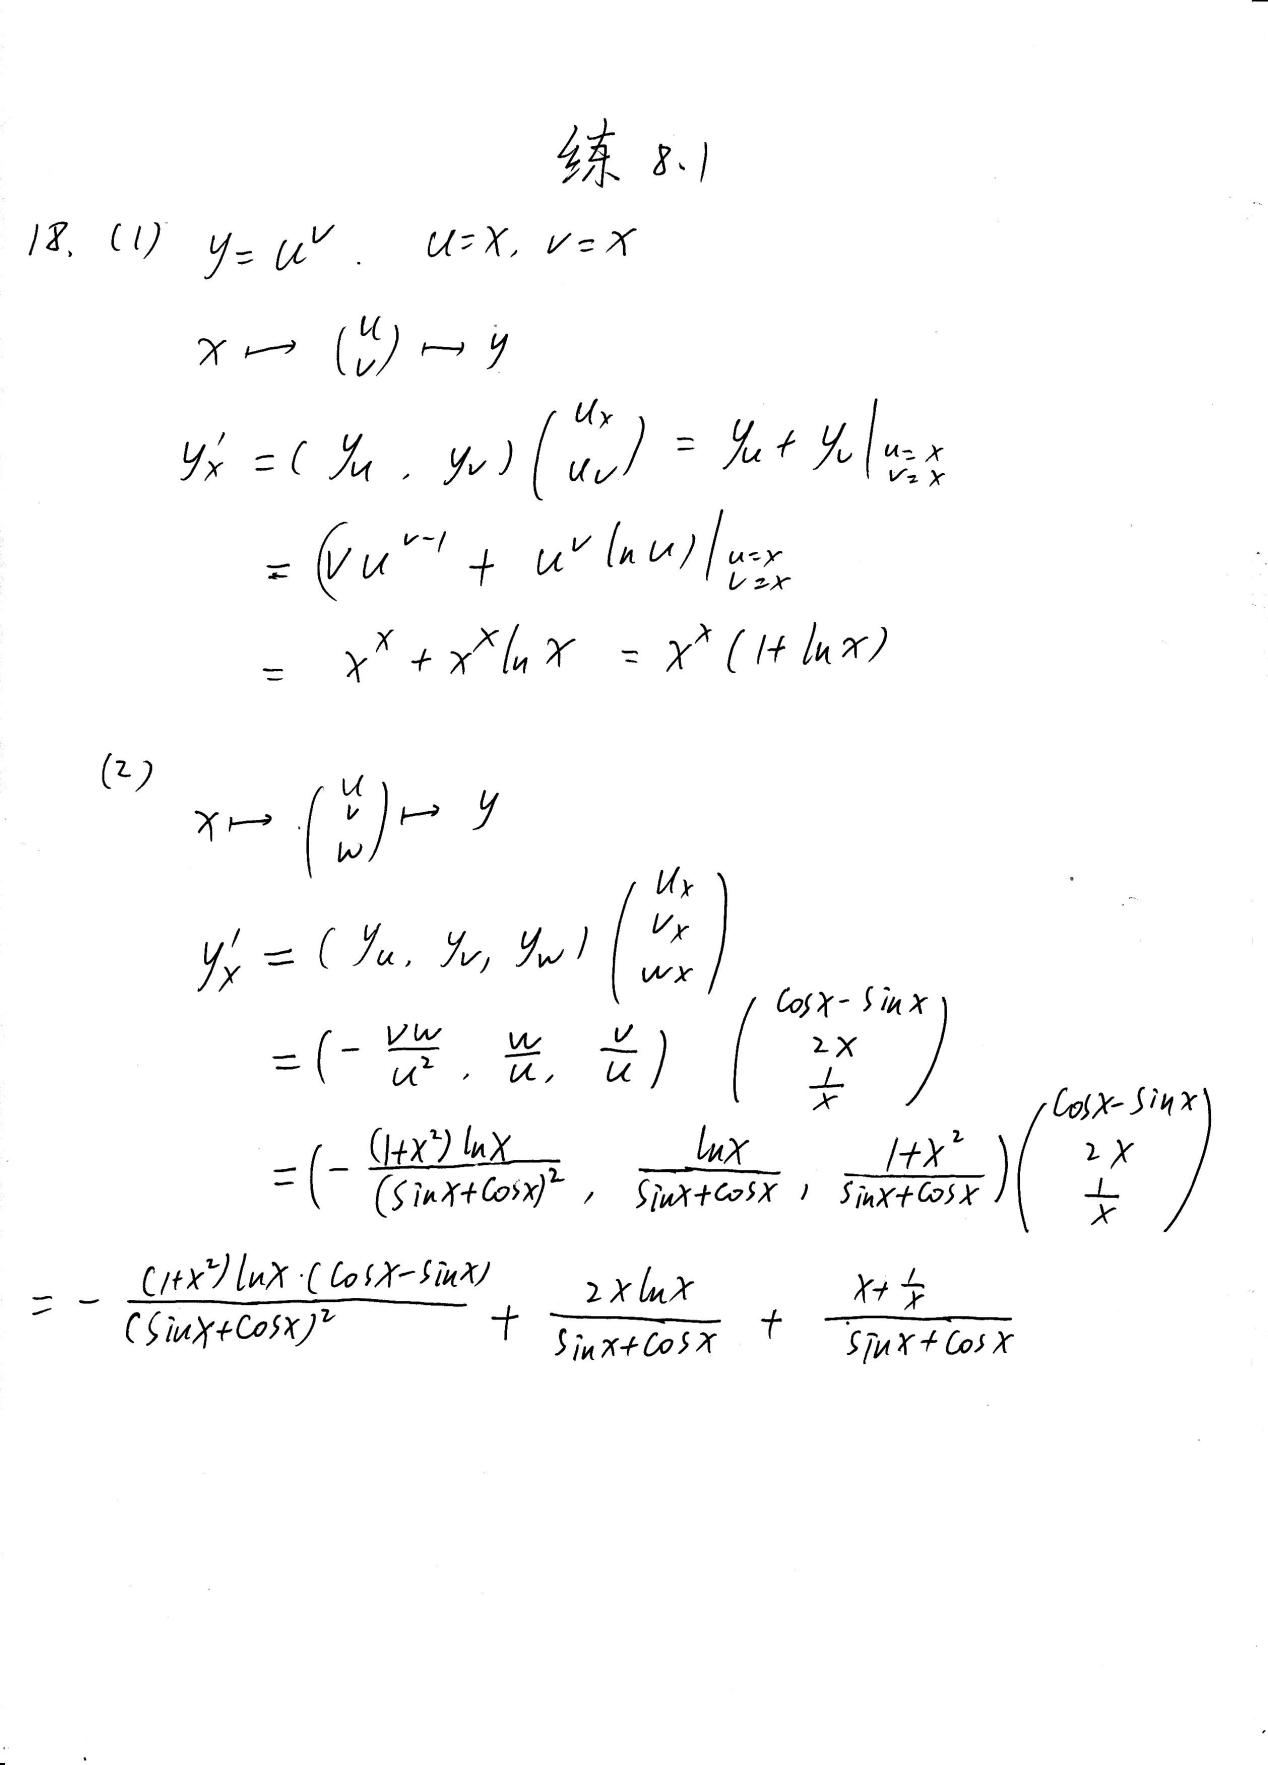 练 8.1
18. (1) y = u^v . u=x, v=x
x ↦ (u v) ↦ y
y'_x = ( y_u , y_v ) ( u_x u_v ) = y_u + y_v |_{u=x v=x}
= (v u^{v-1} + u^v ln u) |_{u=x v=x}
= x^x + x^x ln x = x^x (1+ ln x)
(2)
x ↦ (u v w) ↦ y
y'_x = ( y_u, y_v, y_w ) ( u_x v_x w_x )
= ( - vw/u^2 , w/u , v/u ) ( cosx - sinx 2x 1/x )
= ( - (1+x^2) lnx / (sinx+cosx)^2 , lnx / sinx+cosx , 1+x^2 / sinx+cosx ) ( cosx - sinx 2x 1/x )
= - (1+x^2) lnx · (cosx - sinx) / (sinx+cosx)^2 + 2x lnx / sinx+cosx + x + 1/x / sinx+cosx